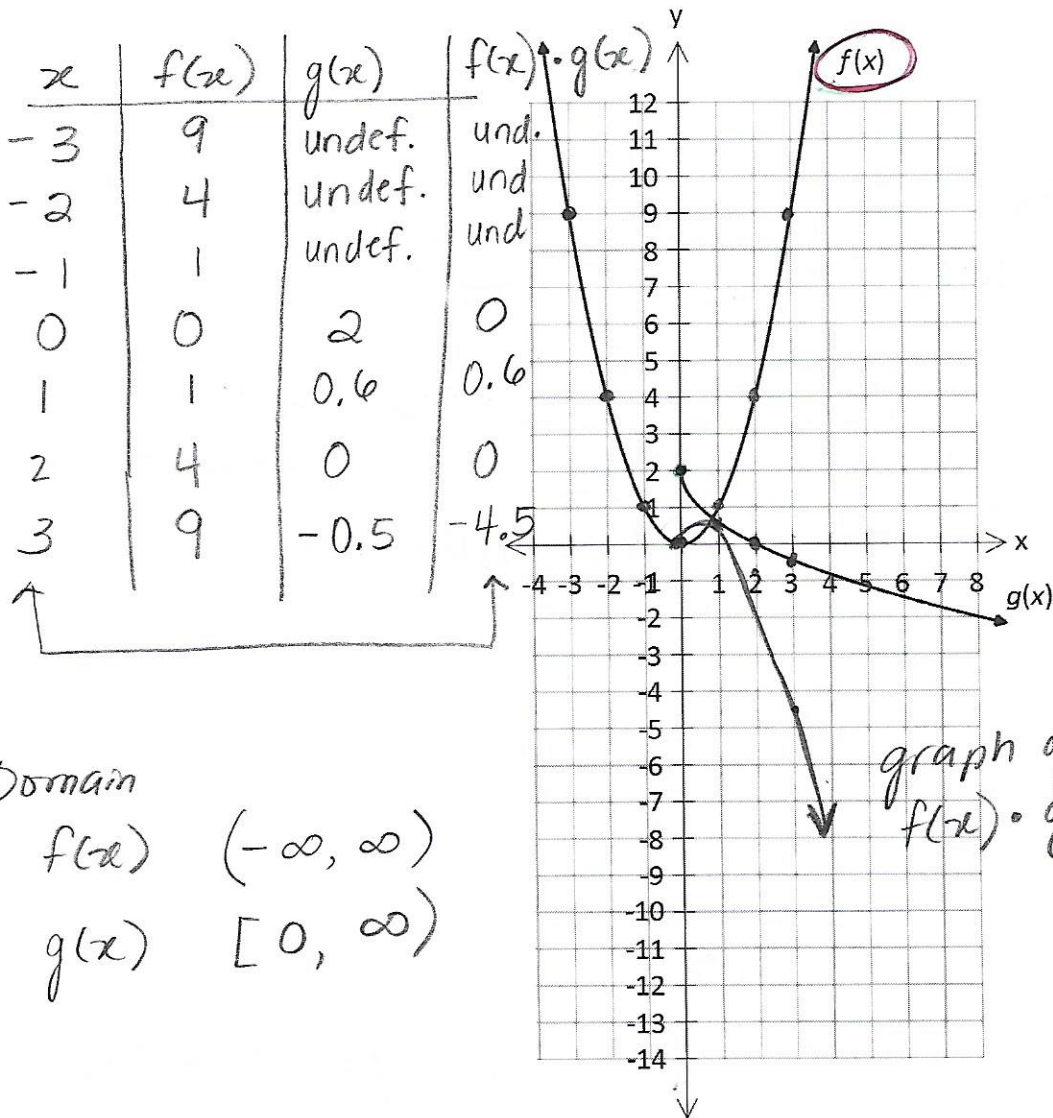 x f(x) g(x) f(x)·g(x)
-3 9 undef. und.
-2 4 undef. und
-1 1 undef. und
0 0 2 0
1 1 0.6 0.6
2 4 0 0
3 9 -0.5 -4.5
y
f(x)
12
11
10
9
8
7
6
5
4
3
2
1
x
-4 -3 -2 -1 1 2 3 4 5 6 7 8
g(x)
-1
-2
-3
-4
-5
-6
-7
-8
-9
-10
-11
-12
-13
-14
graph
f(x)·
Domain
f(x) (-∞, ∞)
g(x) [0, ∞)